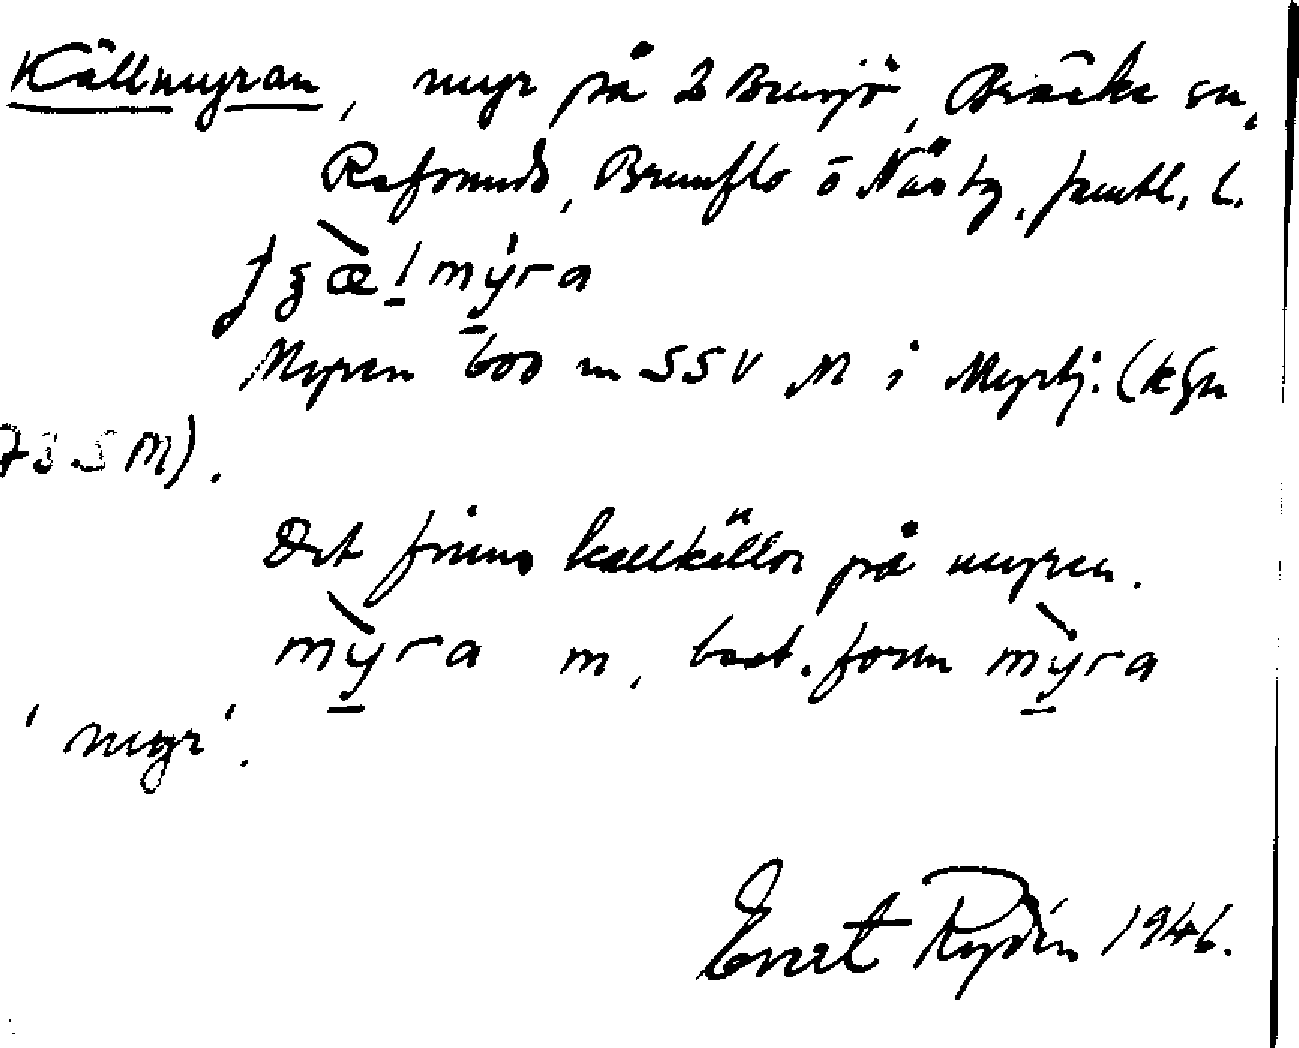 Källmyran, myr på 2 Brunsjö, Bräcke sn,
Refsunds, Brunflo o Näs tg, Jämtl. l.
mýra
Myren 600 m SSV M i Myrbj. (kfn
73 SM).
Det finns kallkällor på myren.
mỳra m, best. form mỳra
'myr'.
Evert Rydén 1946.